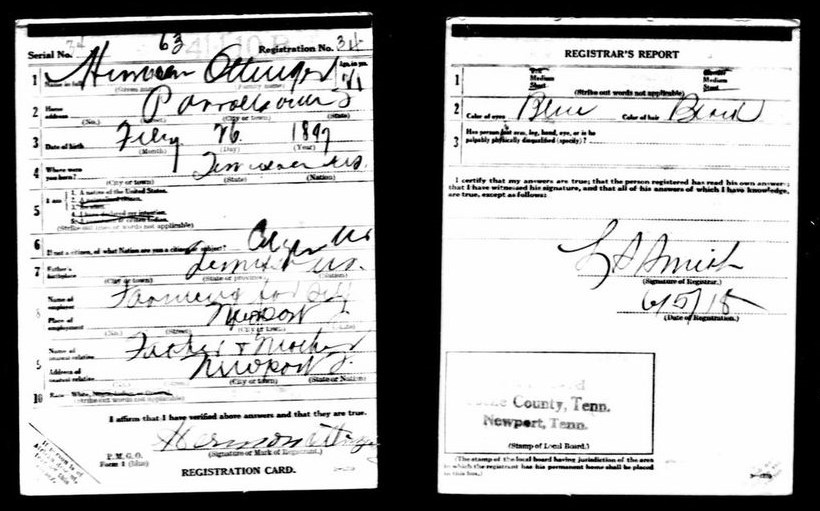 Serial No. 63 Registration No. 34
1 Herman Ottinger 21
Name in full (Given name) (Family name) Age, in yrs.
2 Home address Parrottsville T
(No.) (Street) (City or town) (State)
3 Date of birth 26 1897
(Month) (Day) (Year)
4 Where were you born? Tennessee U.S.
(City or town) (State) (Nation)
5 I am 1. A native of the United States.
2. A naturalized citizen.
4. I have declared my intention.
(Strike out lines or words not applicable)
6 If not a citizen, of what Nation are you a citizen or subject?
7 Father's birthplace U.S.
(City or town) (State or province) (Nation)
8 Name of employer Farming for Self
Place of employment Newport T.
(No.) (Street) (City or town) (State)
9 Name of nearest relative Father & Mother
Address of nearest relative Newport T.
(City or town) (State or Nation)
10 Race—White,
(Strike out words not applicable)
I affirm that I have verified above answers and that they are true.
Herman Ottinger
(Signature or Mark of Registrant.)
P. M. G. O.
Form 1 (blue)
REGISTRATION CARD.
REGISTRAR'S REPORT
1 Tall Slender
Medium Medium
Short Stout
(Strike out words not applicable)
2 Color of eyes Blue Color of hair
3 Has person lost arm, leg, hand, eye, or is he
palpably physically disqualified (specify)?
I certify that my answers are true; that the person registered has read his own answers;
that I have witnessed his signature, and that all of his answers of which I have knowledge,
are true, except as follows:
L S Smith
(Signature of Registrar.)
6/5/18
(Date of Registration.)
County, Tenn.
Newport, Tenn.
(Stamp of Local Board.)
(The stamp of the local board having jurisdiction of the area
in which the registrant has his permanent home shall be placed
in this box.)